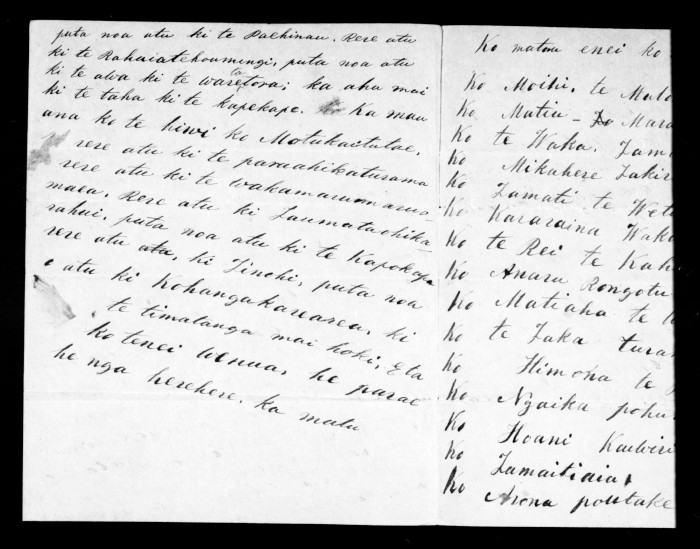 puta noa atu ki te Paehinau. Rere atu
ki te Rahuiatehoumingi, puta noa atu
ki te awa ki te waretota; ka ahu mai
ki te taha ki te kapekape. Ka mau
ana ko te hiwi ko Motukaitutae,
rere atu ki te paraahikaturama
rere atu ki te wakamarumarui
maea. Rere atu ki Taumataohika
rahui, puta noa atu ki te Kapekape
rere atu atu, ki Tinohi, puta noa
atu ki Kohangakarearea, ki
te timatanga mai hoki, Eta
ko tenei wenua, he parae
he nga herehere. ka mutu
Ko matou enei ko
Ko Moihi, te Mato
Ko Matiu - Ko Mara
Ko te Waka. Tam
Ko Mikahere Takir
Ko Tamati te Wet
Ko Kararaina Waka
Ko te Rei te Kah
Ko Anaru Rongotu
Ko Matiaha te
Ko te Taka tura
Ko Himona te
Ko Ngaika pohu
Ko Hoani Kawiri
Ko Tamaitiaia
Ko Arona poutake